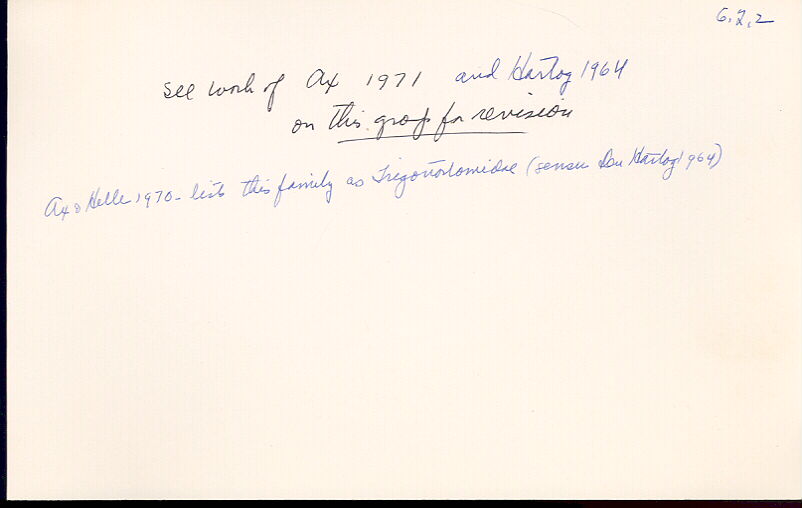 6.2.2
see work of Ax 1971 and Hartog 1964
on this group for revision
Ax & Helle 1970 - lists this family as Trigonostomidae (sensu Den Hartog 1964)